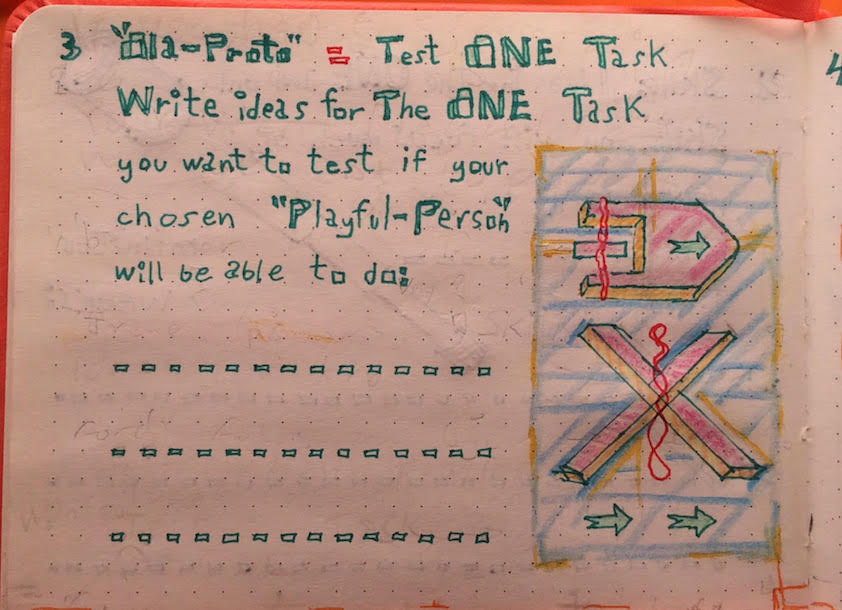 3 "Ola-Proto" = Test ONE Task
Write ideas for The ONE Task
you want to test if your
chosen "Playful-Person"
will be able to do:
4